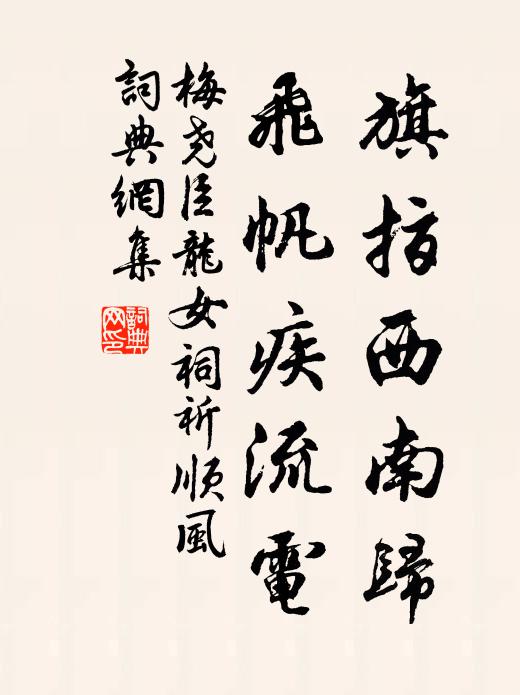 旗指西南歸
飛帆疾流電
梅堯臣龍女祠祈順風
詞典網集
詞典网印